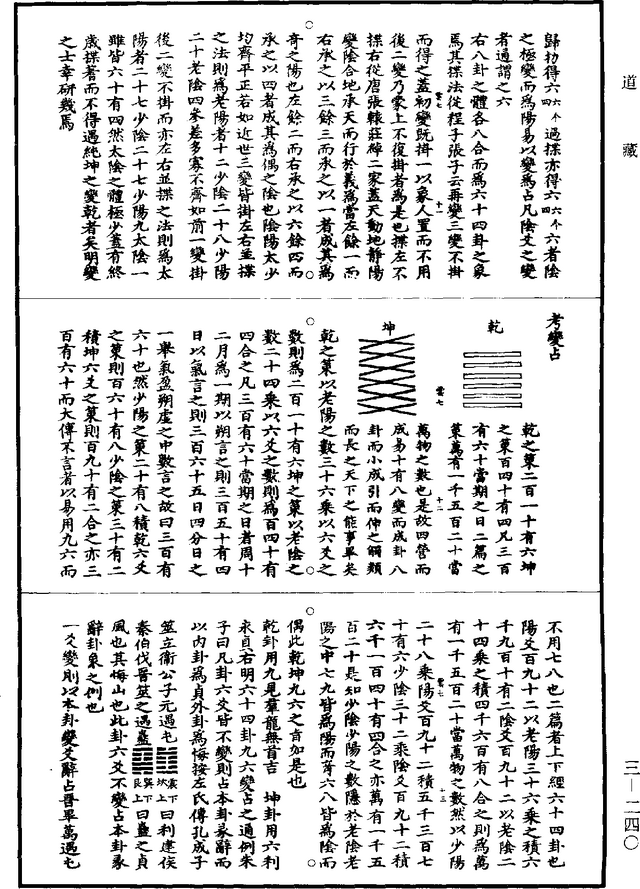 道藏
歸扐得六四六个過揲亦得六四六个六者陰
之極變而為陽易以變為占凡陰爻之變
者通謂之六
右八卦之體各八合而為六十四卦之象
焉其揲法從程子張子云再變三變不掛
十一
而得之蓋初變既掛一以象人置而不用
後二變乃蒙上不復掛者為是也揲左不
揲右從唐張轅莊綽二家蓋天動地靜陽
變陰合地承天而行於義為當左餘一而
右承之以三餘三而承之以一者成其為
奇之陽也左餘二而右承之以六餘四而
承之以四者成其為偶之陰也陰陽太少
均齊平正若如近世三變皆掛左右並揲
之法則為老陽者十二少陰二十八少陽
二十老陰四參差多寡不齊如前一變掛
後二變不掛而亦左右並揲之法則為太
陽者二十七少陰二十七少陽九太陰一
雖皆六十有四然太陰之體極少蓋有終
歲揲蓍而不得遇純坤之變乾者矣明變
之士幸研幾焉
考變占
乾
坤
乾之策二百一十有六坤
之策百四十有四凡三百
有六十當期之日二篇之
策萬有一千五百二十當
十二
萬物之數也是故四營而
成易十有八變而成卦八
卦而小成引而伸之觸類
而長之天下之能事畢矣
乾之策以老陽之數三十六乘以六爻之
數則為二百一十有六坤之策以老陰之
數二十四乘以六爻之數則為百四十有
四合之凡三百有六十當期之日者周十
二月為一期以朔言之則三百五十有四
日以氣言之則三百六十五日四分日之
一舉氣盈朔虛之中數言之故曰三百有
六十也然少陽之策二十有八積乾六爻
之策則百六十有八少陰之策三十有二
積坤六爻之策則百九十有二合之亦三
百有六十而大傳不言者以易用九六而
不用七八也二篇者上下經六十四卦也
陽爻百九十二以老陽三十六乘之積六
千九百十有二陰爻百九十二以老陰二
十四乘之積四千六百有八合之則為萬
有一千五百二十當萬物之數然以少陽
十三
二十八乘陽爻百九十二積五千三百七
十有六少陰三十二乘陰爻百九十二積
六千一百四十有四合之亦萬有一千五
百二十是知少陰少陽之數隱於老陰老
陽之中七九皆為陽而奇六八皆為陰而
偶此乾坤九六之旨加是也
乾卦用九見羣龍無首吉　坤卦用六利
永貞右明六十四卦九六變占之通例朱
子曰凡卦六爻皆不變則占本卦彖辭而
以內卦為貞外卦為悔按左氏傳孔成子
筮立衛公子元遇屯震下坎上曰利建侯
秦伯伐晉筮之遇蠱巽下艮上曰蠱之貞
風也其悔山也此卦六爻不變占本卦彖
辭卦象之例也
一爻變則以本卦變爻辭占晉畢萬遇屯
三―二四〇